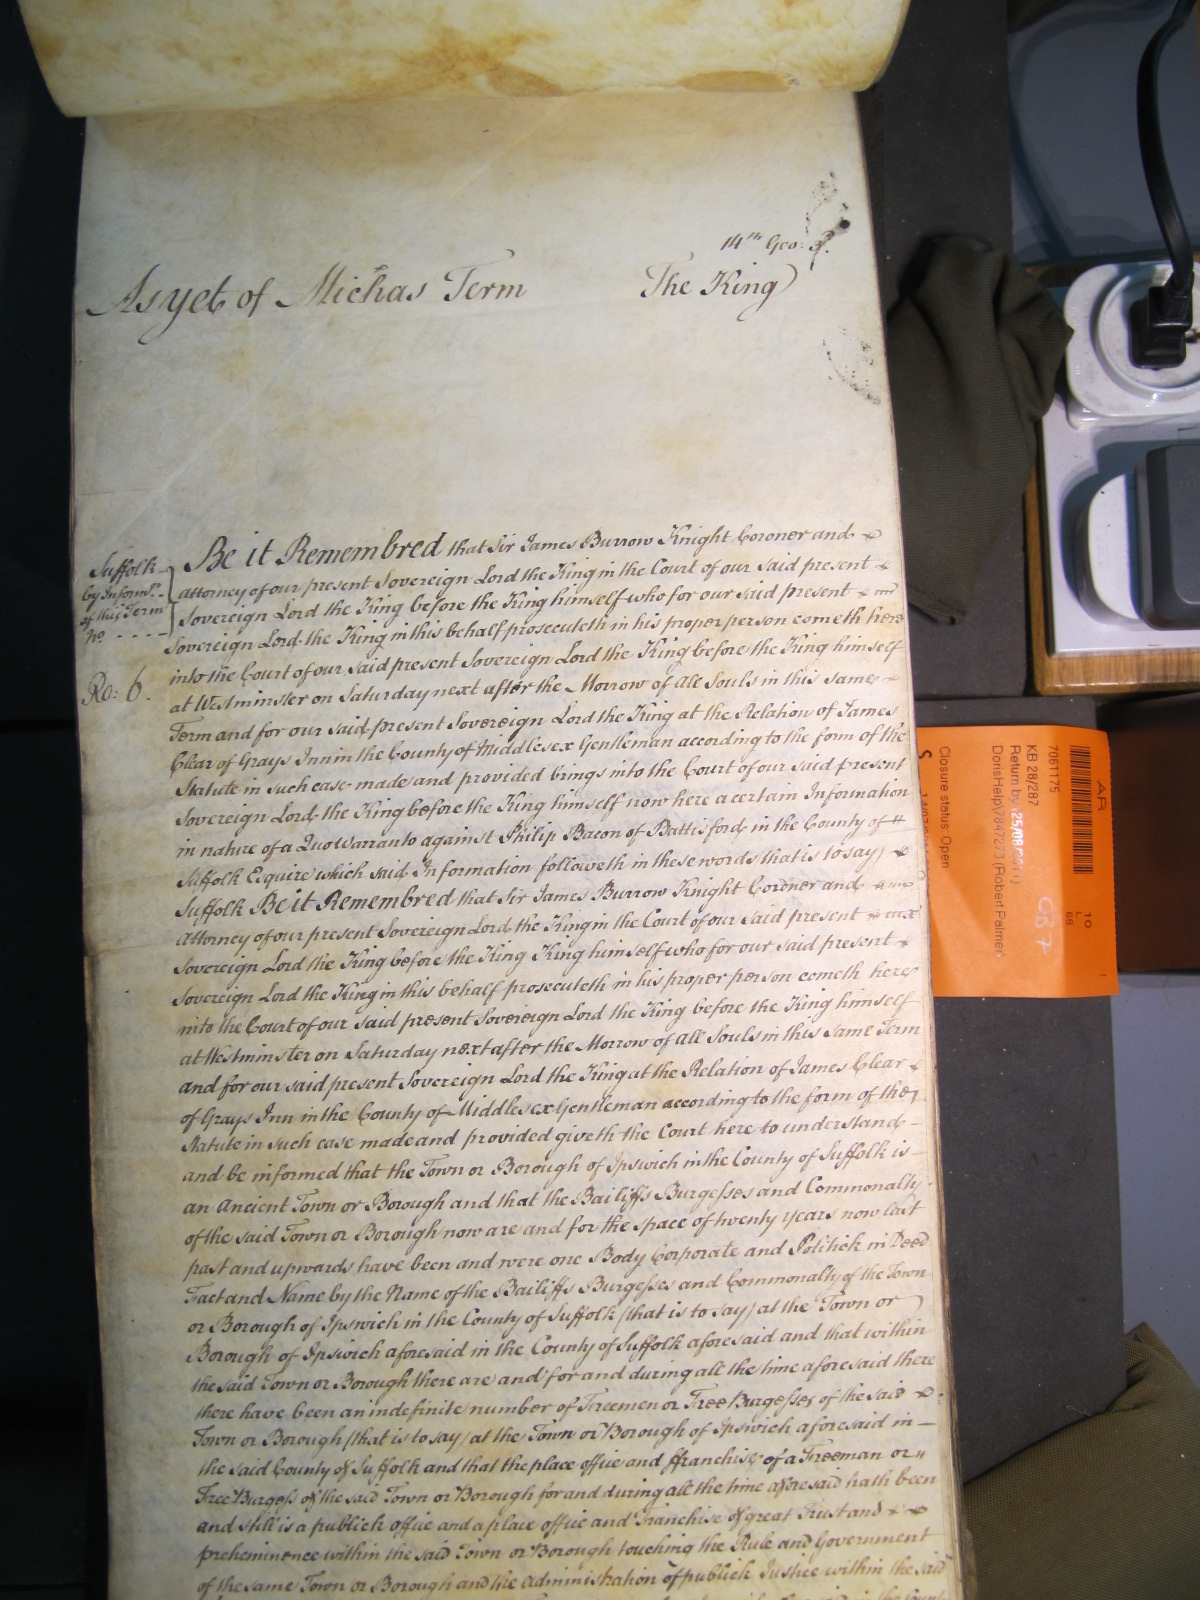 14th Geo: 3.
As yet of Michas Term The King
Suffolk
by Informn.
of this Term
No. - - - -
Ro: 6.
Be it Remembred that Sir James Burrow Knight Coroner and
attorney of our present Sovereign Lord the King in the Court of our said present
Sovereign Lord the King before the King himself who for our said present
Sovereign Lord the King in this behalf prosecuteth in his proper person cometh here
into the Court of our said present Sovereign Lord the King before the King himself
at Westminster on Saturday next after the Morrow of all Souls in this same
Term and for our said present Sovereign Lord the King at the Relation of James
Clear of Grays Inn in the County of Middlesex Gentleman according to the form of the
Statute in such case made and provided brings into the Court of our said present
Sovereign Lord the King before the King himself now here a certain Information
in nature of a Quo Warranto against Philip Bacon of Battisford in the County of
Suffolk Esquire which said Information followeth in these words that is to say)
Suffolk Be it Remembred that Sir James Burrow Knight Coroner and
attorney of our present Sovereign Lord the King in the Court of our said present
Sovereign Lord the King before the King King himself who for our said present
Sovereign Lord the King in this behalf prosecuteth in his proper person cometh here
into the Court of our said present Sovereign Lord the King before the King himself
at Westminster on Saturday next after the Morrow of all Souls in this same Term
and for our said present Sovereign Lord the King at the Relation of James Clear
of Grays Inn in the County of Middlesex Gentleman according to the form of the
Statute in such case made and provided giveth the Court here to understand
and be informed that the Town or Borough of Ipswich in the County of Suffolk is
an Ancient Town or Borough and that the Bailiffs Burgesses and Commonalty
of the said Town or Borough now are and for the space of twenty years now last
past and upwards have been and were one Body Corporate and Politick in Deed
Fact and Name by the Name of the Bailiffs Burgesses and Commonalty of the Town
or Borough of Ipswich in the County of Suffolk (that is to say) at the Town or
Borough of Ipswich aforesaid in the County of Suffolk aforesaid and that within
the said Town or Borough there are and for and during all the time aforesaid there
there have been an indefinite number of Freemen or Free Burgesses of the said
Town or Borough (that is to say) at the Town or Borough of Ipswich aforesaid in
the said County of Suffolk and that the place office and ffranchise of a Freeman or
Free Burgess of the said Town or Borough for and during all the time aforesaid hath been
and still is a publick office and a place office and Franchise of great Trust and
preheminence within the said Town or Borough touching the Rule and Government
of the same Town or Borough and the administration of publick Justice within the said
AR
10
L
68
7061175
KB 28/287
Return by (25/08/2011)
DorisHelp\7847273 (Robert Palmer)
Closure status: Open